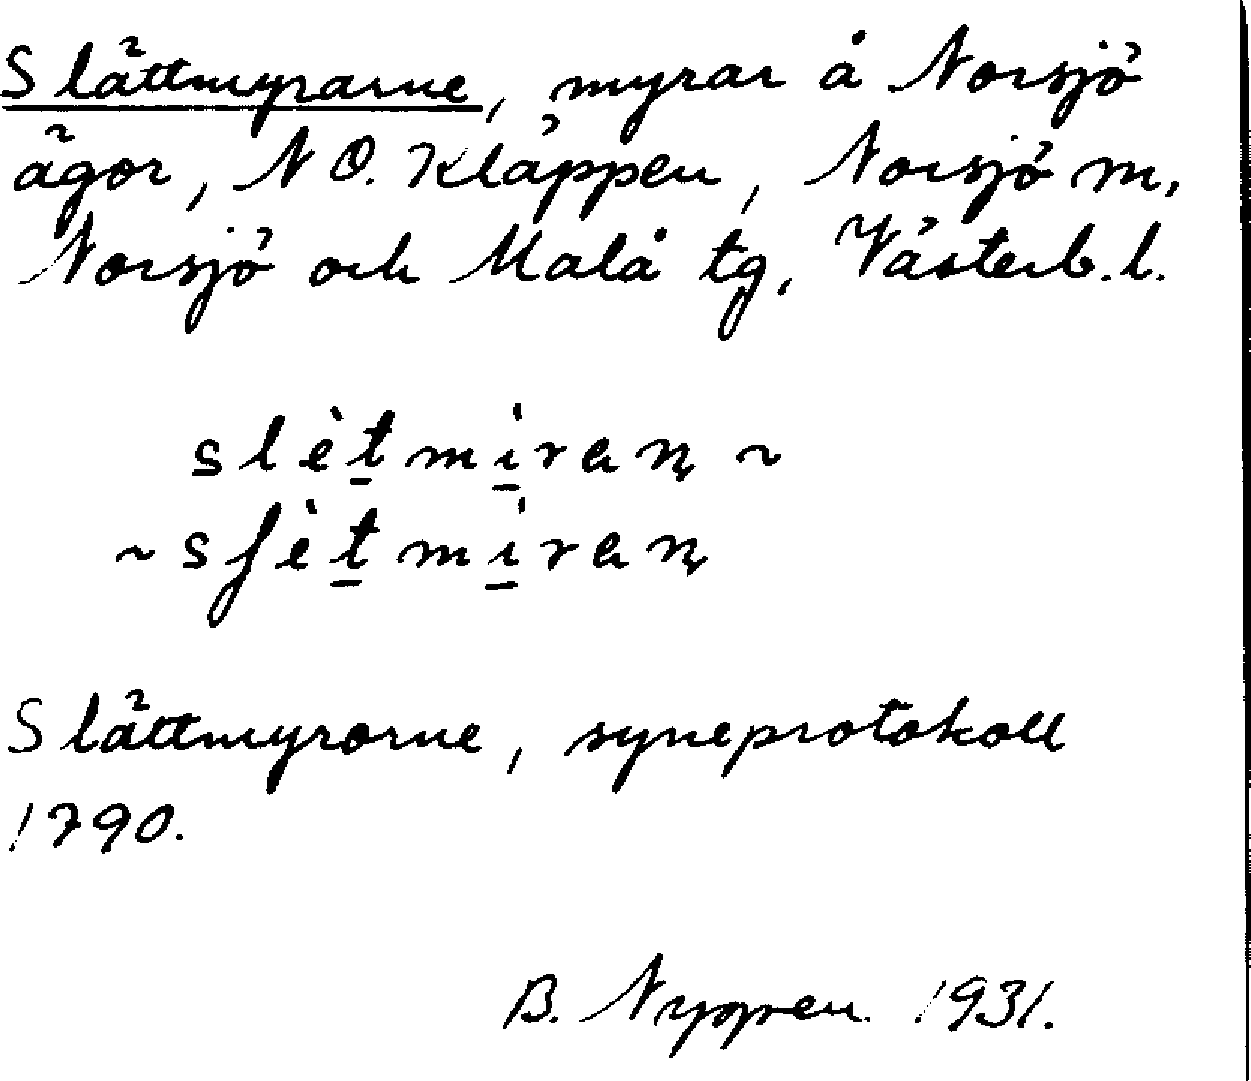 Slättmyrarne, myrar å Norsjö
ägor, N O. Kläppen, Norsjö m,
Norsjö och Malå tg, Västerb. l.
slètmìran̨ ~
~ sʃètmìran̨
Slättmyrorne, syneprotokoll
1790.
B. Nyppen 1931.